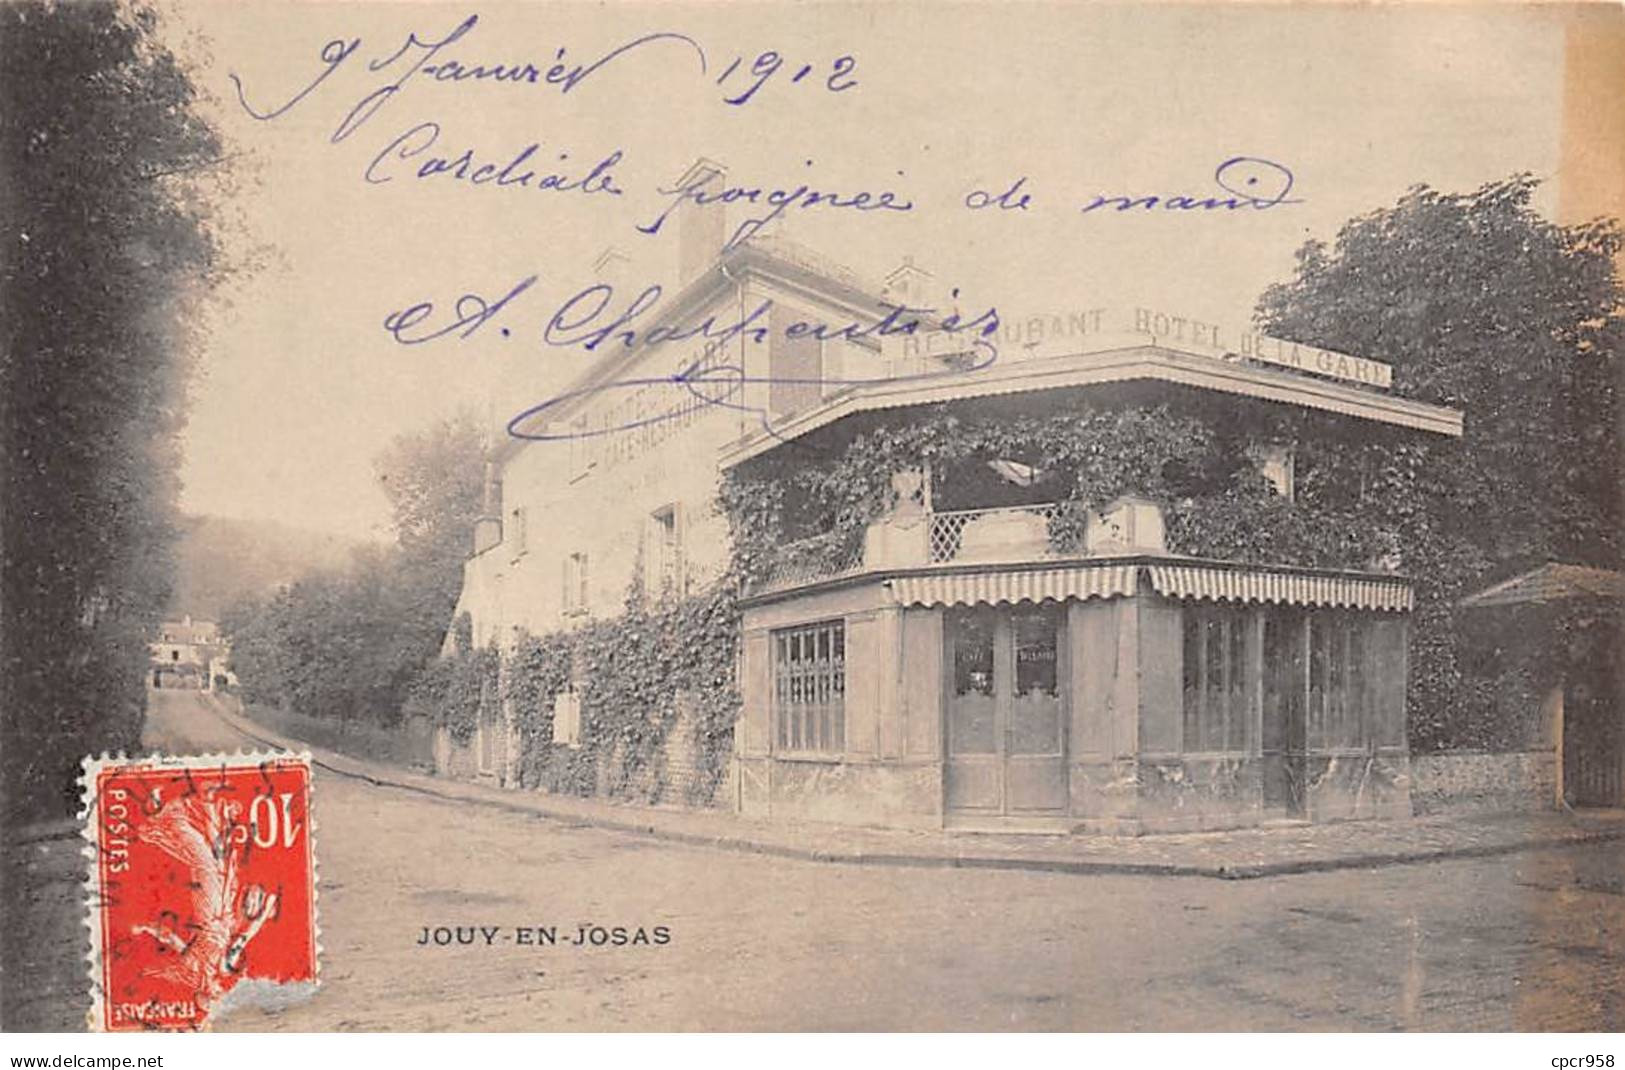 9 Janvier 1912
Cordiale poignée de main
A. Charpentier
RESTAURANT HOTEL DE LA GARE
HOTEL GARE
CAFÉ-RESTAURANT
CAFÉ BILLARD
10c.
POSTES
FRANÇAISE
JOUY-EN-JOSAS
www.delcampe.net
cpcr958